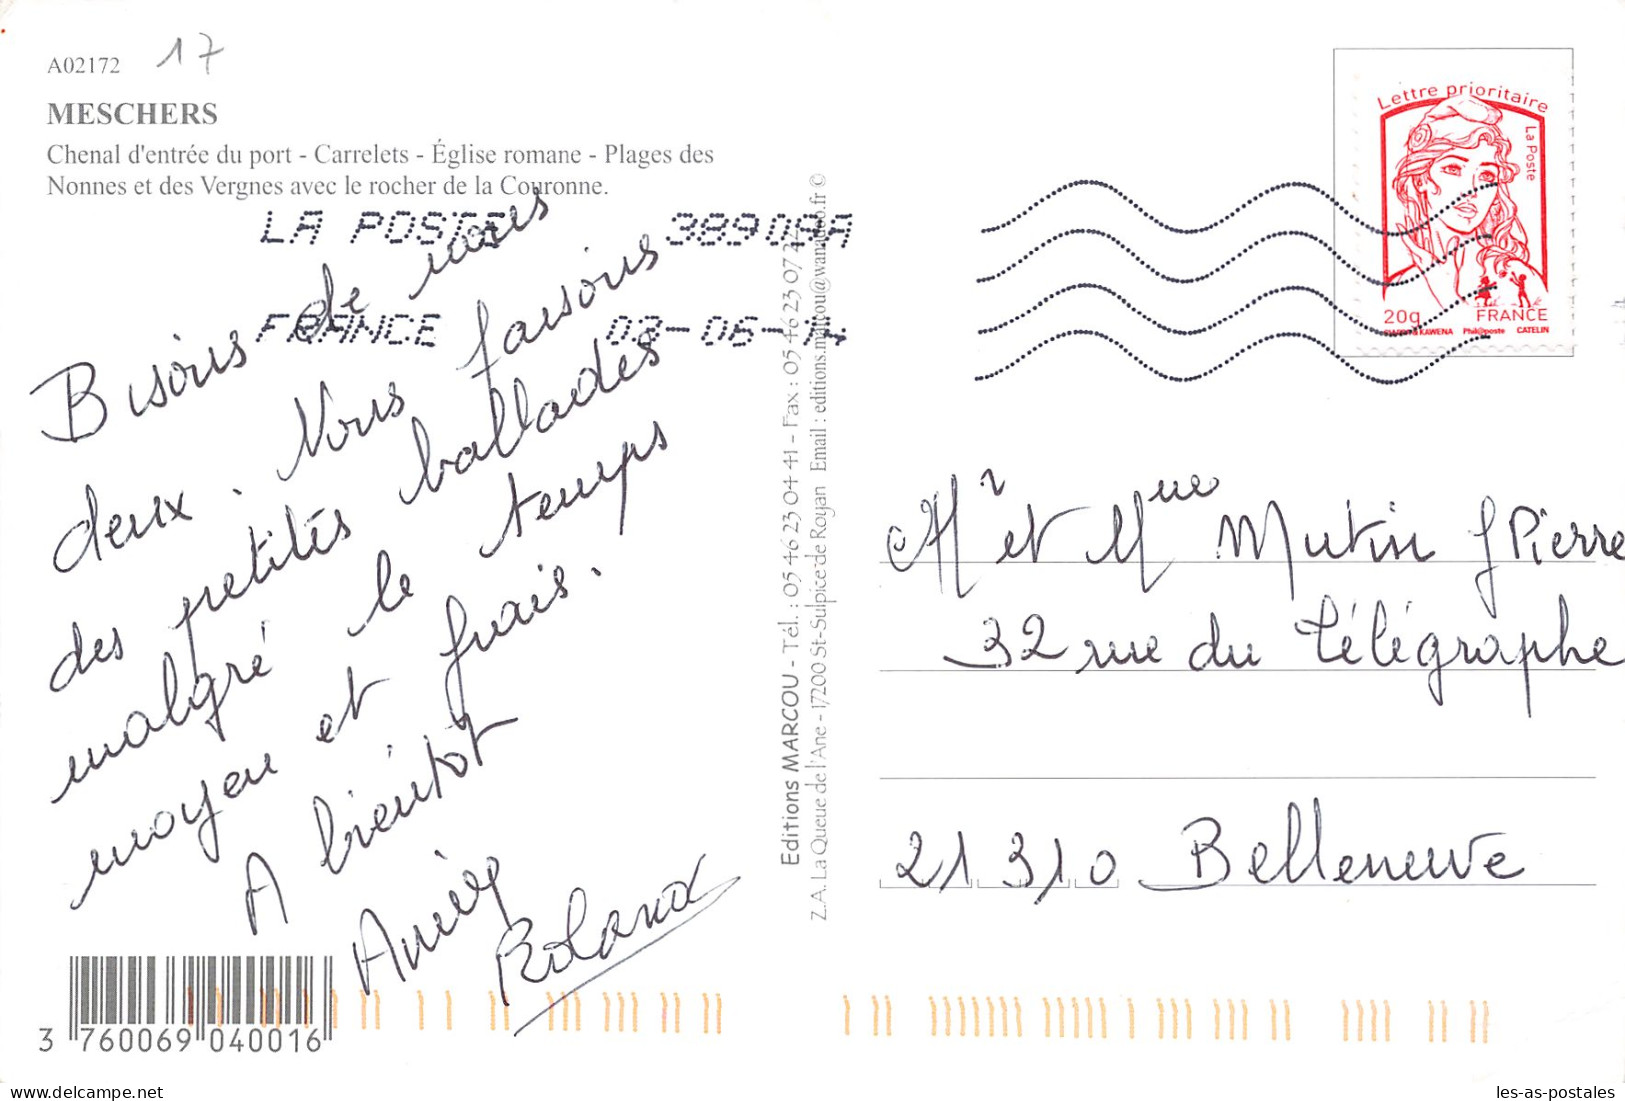 A02172 17
MESCHERS
Chenal d'entrée du port - Carrelets - Église romane - Plages des
Nonnes et des Vergnes avec le rocher de la Couronne.
LA POSTE 38909A
FRANCE 03-06-14
Bisous de nous
deux. Nous faisons
des petites ballades
malgré le temps
moyen et frais.
A bientôt
Annie
Roland
3 760069 040016
Editions MARCOU - Tél. : 05 46 23 04 41 - Fax : 05 46 23 07
Z.A. La Queue de l'Ane - 17200 St-Sulpice de Royan Email : editions.marcou@wanadoo.fr ©
Lettre prioritaire
La Poste
20g FRANCE
KAWENA Phil@poste CATELIN
Mr et Mme Mutin J Pierre
32 rue du Télégraphe
21310 Belleneuve
les-as-postales